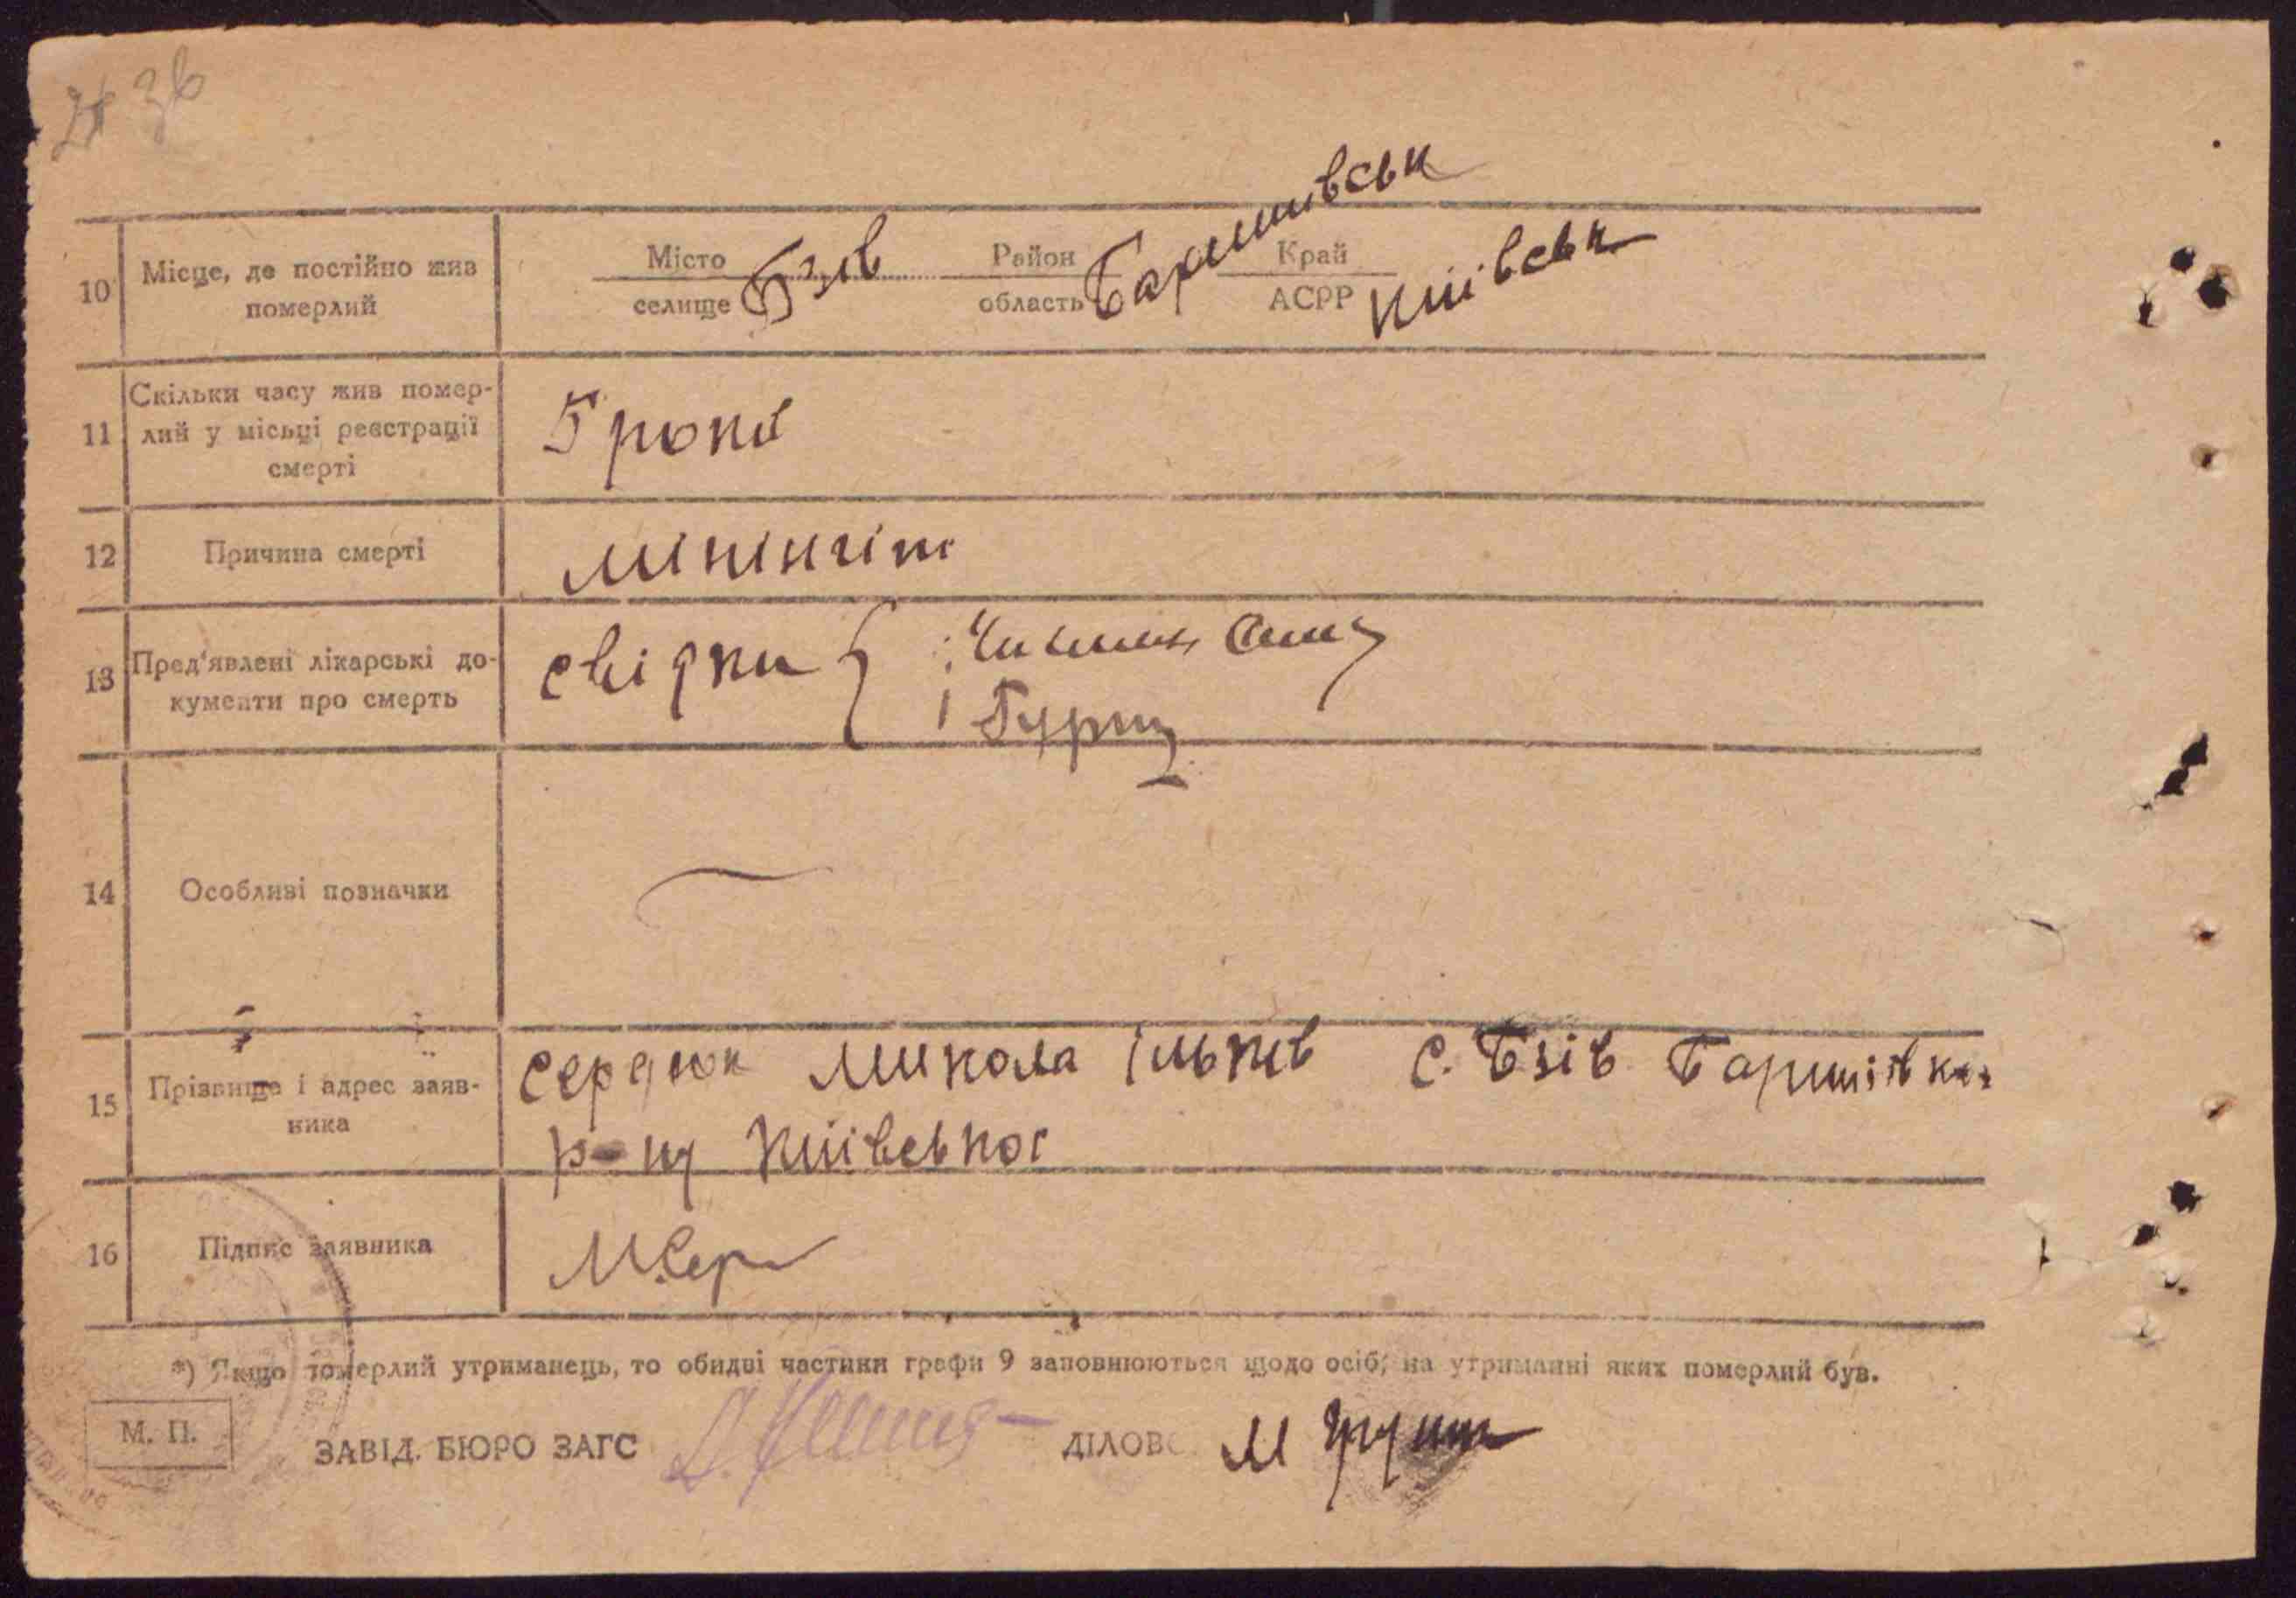 36
10 Місце, де постійно жив померлий
Місто селище Бзів Район область Баришивськ Край АСРР Київськ
11 Скільки часу жив помер-
лий у місьці реєстрації
смерті
5 роки
12 Причина смерті
мінінгіт
13 Пред'явлені лікарські до-
кументи про смерть
свідки
14 Особливі позначки
15 Прізвище і адрес заяв-
ника
Сердюк Микола Ільків с. Бзів Баришівка
р-ну Київської
16 Підпис заявника
М.Сер
*) Якщо померлий утриманець, то обидві частини графи 9 заповнюються щодо осіб, на утриманні яких померлий був.
М. П.
ЗАВІД. БЮРО ЗАГС
ДІЛОВ